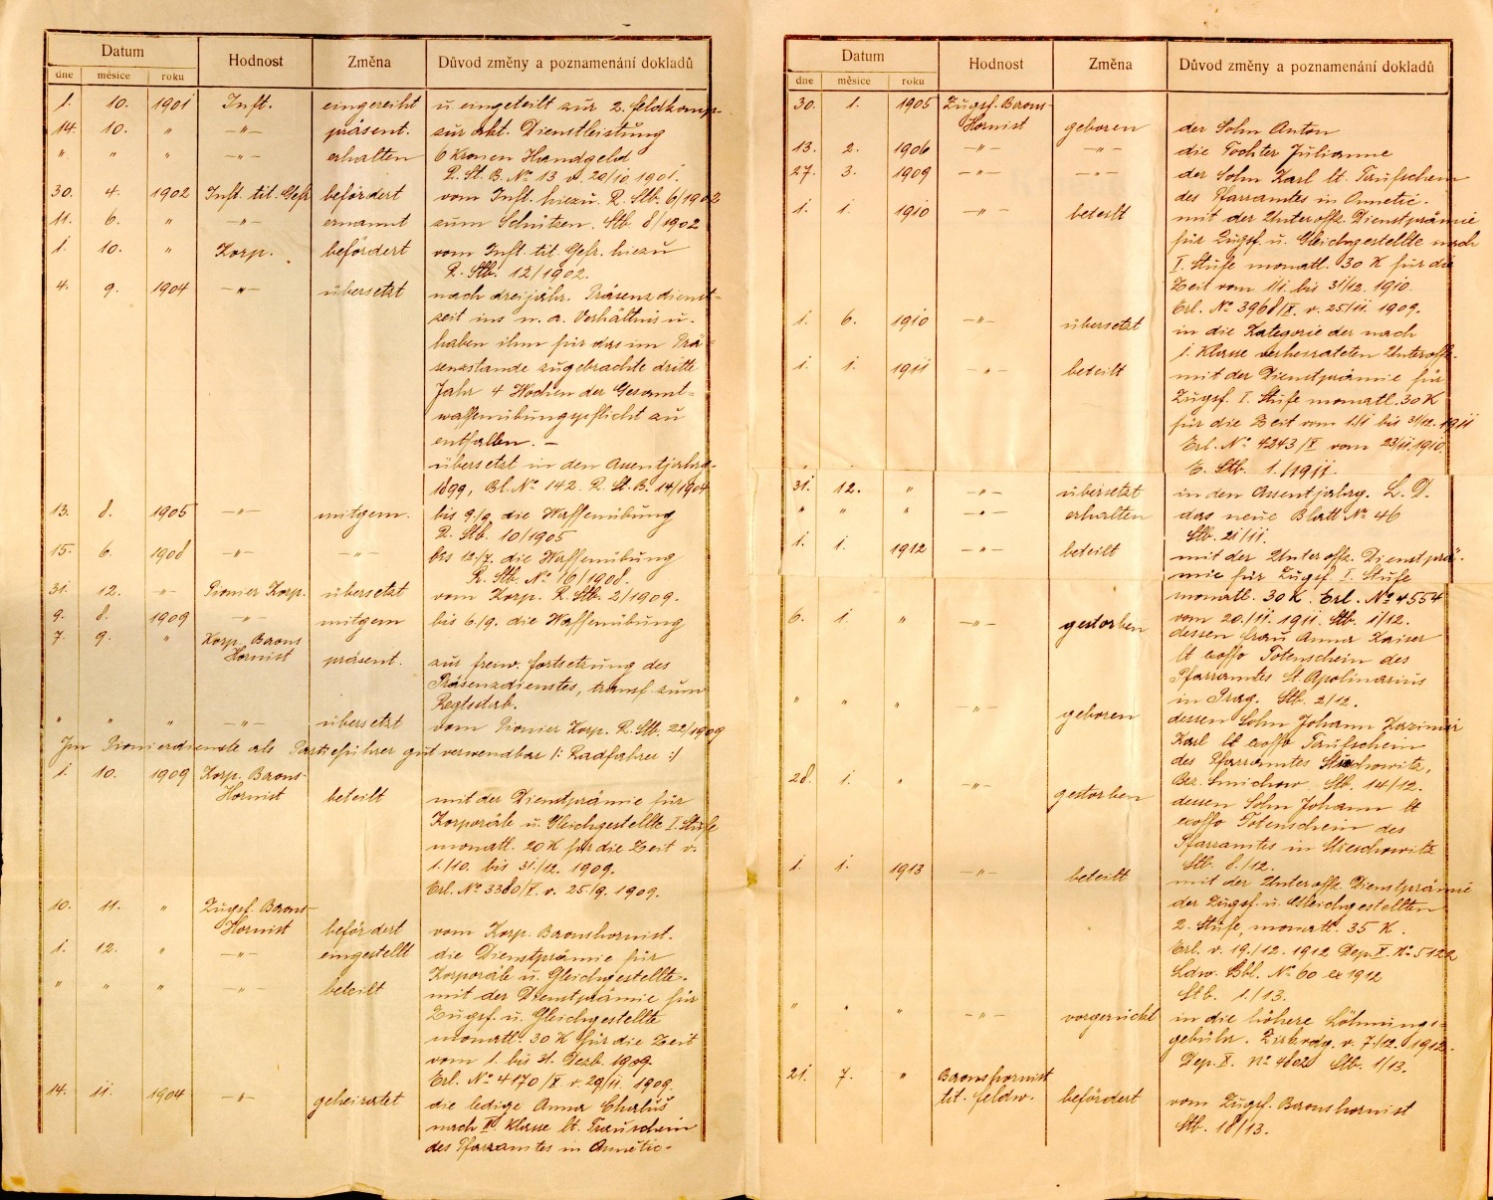 Datum Hodnost Změna Důvod změny a poznamenání dokladů
dne měsíce roku
1. 10. 1901 Inft. eingereiht u. eingeteilt zur 2. Feldkomp.
14. 10. " -"- präsent. zur akt. Dienstleistung
" " " -"- erhalten 6 Kronen Handgeld
R. St. B. No 13 v. 20/10 1901.
30. 4. 1902 Inft. tit. Gefr. befördert vom Inft. hiezu. R. Stb. 6/1902
11. 6. " -"- ernannt zum Schützen. Stb. 8/1902
1. 10. " Korp. befördert vom Inft. tit. Gefr. hiezu
R. Stb. 12/1902.
4. 9. 1904 -"- übersetzt nach dreijähr. Präsenzdienst-
zeit ins n. a. Verhältnis u.
haben ihm für das im Prä-
senzstande zugebrachte dritte
Jahr 4 Wochen der Gesamt-
waffenübungspflicht zu
entfallen. —
übersetzt in den Assentjahrg.
1899, Bl. No 142. R. St. B. 14/1904
13. 8. 1905 -"- mitgem. bis 9/9. die Waffenübung
R. Stb. 10/1905
15. 6. 1908 -"- -"- bis 12/7. die Waffenübung
R. Stb. No 16/1908.
31. 12. -"- Pionier Korp. übersetzt vom Korp. R. Stb. 2/1909.
9. 8. 1909 -"- mitgem bis 6/9. die Waffenübung
7. 9. " Korp. Baons
Hornist präsent. zur freiw. Fortsetzung des
Präsenzdienstes, transf. zum
Regtsstab.
" " " -"- übersetzt vom Pionier Korp. R. Stb. 22/1909
Im Pionierdienste als Partieführer gut verwendbar /: Radfahrer :/
1. 10. 1909 Korp. Baons-
Hornist beteilt mit der Dienstprämie für
Korporäle u. Gleichgestellte I. Stufe
monatl. 20 K für die Zeit v.
1./10. bis 31./12. 1909.
Erl. No 3380/V. v. 25/9. 1909.
10. 11. " Zugsf. Baons-
Hornist befördert vom Korp. Baonshornist.
1. 12. " -"- eingestellt die Dienstprämie für
Korporäle u. Gleichgestellte.
" " " -"- beteilt mit der Dienstprämie für
Zugsf. u. Gleichgestellte
monatl. 30 K für die Zeit
vom 1. bis 31. Dezb. 1909.
Erl. No 4170/V v. 29/11. 1909.
14. 11. 1904 -"- geheiratet die ledige Anna
nach II. Klasse lt. Trauschein
des Pfarramtes in
Datum Hodnost Změna Důvod změny a poznamenání dokladů
dne měsíce roku
30. 1. 1905 Zugsf. Baons-
Hornist geboren der Sohn Anton
13. 2. 1906 -"- -"- die Tochter Julianne
27. 3. 1909 -"- -"- der Sohn Karl lt. Taufschein
des Pfarramtes in
1. 1. 1910 -"- beteilt mit der Unteroffz. Dienstprämie
für Zugsf. u. Gleichgestellte nach
I. Stufe monatl. 30 K für die
Zeit vom 1/1. bis 31/12. 1910.
Erl. No 3968/V. v. 25/11. 1909.
1. 6. 1910 -"- übersetzt in die Kategorie der nach
1. Klasse verheirateten Unteroffz.
1. 1. 1911 -"- beteilt mit der Dienstprämie für
Zugsf. I. Stufe monatl. 30 K
für die Zeit vom 1/1 bis 31/12. 1911
Erl. No 4243/V vom 23/11. 1910.
E. Stb. 1./1911.
31. 12. " -"- übersetzt in den Assentjahrg. L. D.
" " " -"- erhalten das neue Blatt No 46
Stb. 21/11.
1. 1. 1912 -"- beteilt mit der Unteroffz. Dienstprä-
mie für Zugsf. I. Stufe
monatl. 30 K. Erl. No 4554
vom 20./11. 1911. Stb. 1/12.
6. 1. " -"- gestorben dessen Frau Anna Kaiser
lt exoffo Totenschein des
Pfarramtes St. Apolinarius
in Prag. Stb. 2/12.
" " " -"- geboren dessen Sohn Johann Kazimir
Karl lt exoffo Taufschein
des Pfarramtes Streschowitz,
Bez. Smichow. Stb. 14/12.
28. 1. " -"- gestorben dessen Sohn Johann lt
exoffo Totenschein des
Pfarramtes in Streschowitz
Stb. 8./12.
1. 1. 1913 -"- beteilt mit der Unteroffz. Dienstprämie
der Zugsf. u. Gleichgestellten
2. Stufe, monatl. 35 K.
Erl. v. 19./12. 1912 Dep. V. No 5122
Ldw. Bbl. No 60 ex 1912
Stb. 1./13.
" " " -"- vorgerückt in die höhere Löhnungs-
gebühr. Zirkvdg. v. 7/12. 1912.
Dep. X. No 4802 Stb. 1/13.
21. 7. " Baonshornist
tit. Feldw. befördert vom Zugsf. Baonshornist
Stb. 18/13.